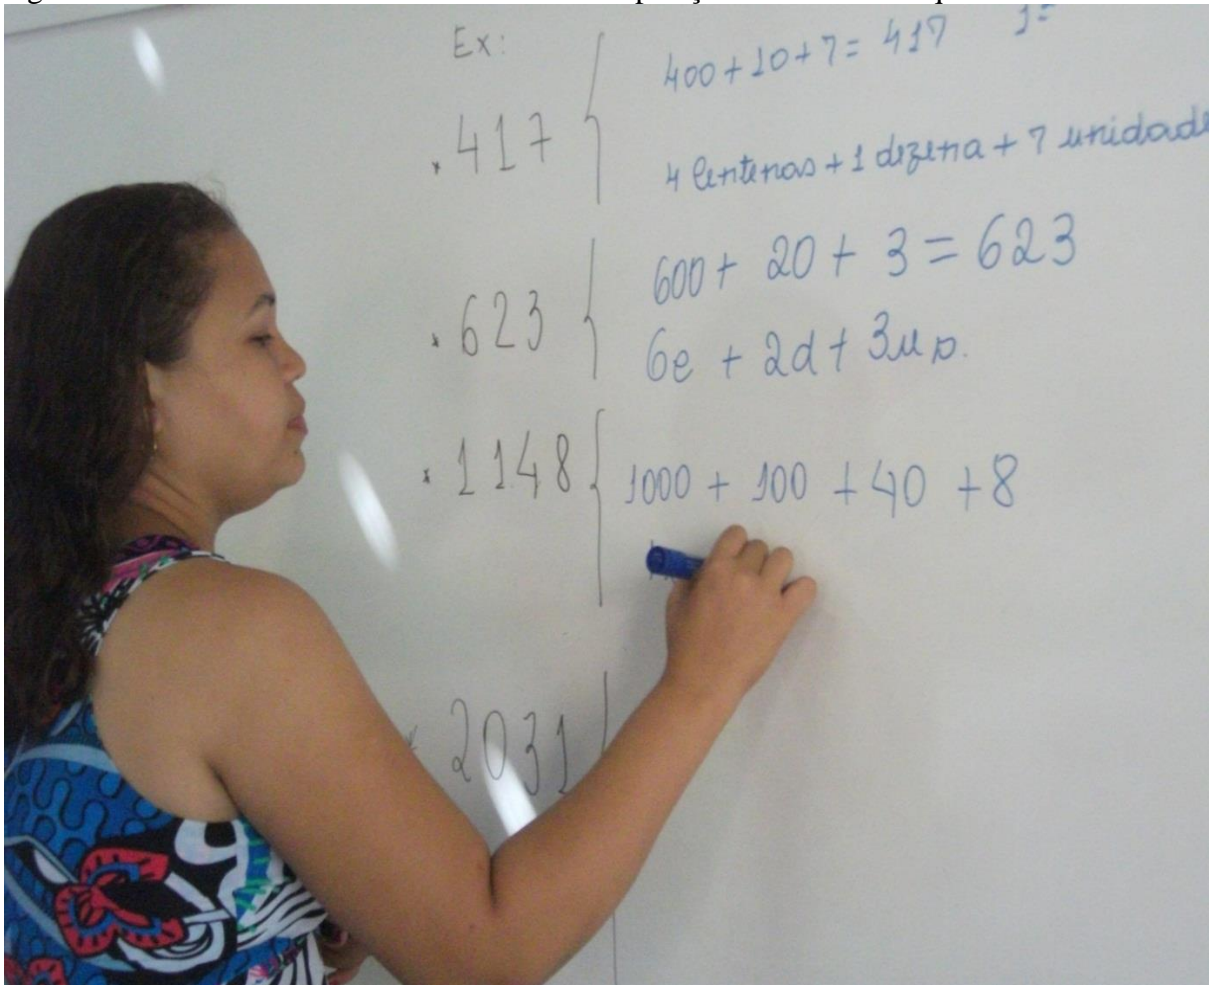 Ex:
. 417 { 400 + 10 + 7 = 417
4 Centenas + 1 dezena + 7 unidade
. 623 { 600 + 20 + 3 = 623
6c + 2d + 3u
. 1148 { 1000 + 100 + 40 + 8
2031 {